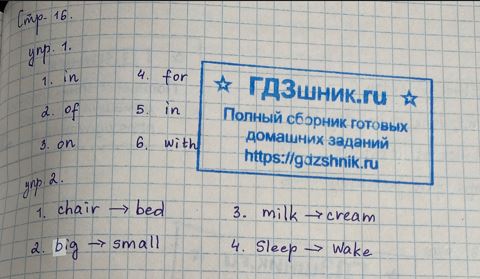 Стр. 16.
упр. 1.
1. in 4. for
2. of 5. in
3. on 6. with
ГДЗшник.ru
Полный сборник готовых
домашних заданий
https://gdzshnik.ru
упр 2.
1. chair → bed 3. milk → cream
2. big → small 4. Sleep → Wake